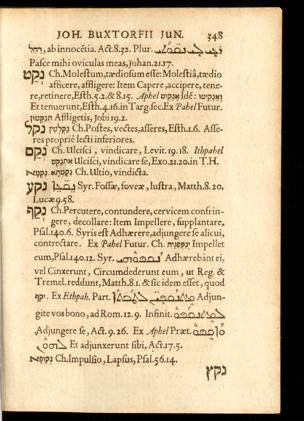 JOH. BUXTORFII JUN. 348
רחל, ab innocentia. Act. 8.32. Plur.
Pasce mihi oviculas meas, Johan. 21.17.
נקט Ch. Molestum, tædiosum esse: Molestiâ, tædio
afficere, affligere: Item Capere, accipere, tene-
re, retinere, Esth. 5.2. & 8.15. Aphel Idē:
Et tenuerunt, Esth. 4.16. in Targ. sec. Ex Pahel Futur.
Affligetis, Jobi 19.2.
נקל Ch. Postes, vectes, asseres, Esth. 1.6. Asse-
res propriè lecti inferiores.
נקם Ch. Ulcisci, vindicare, Levit. 19.18. Ithpahel
Ulcisci, vindicare se, Exo. 21.20. in T.H.
Ch. Ultio, vindicta.
נקע Syr. Fossæ, foveæ, lustra, Matth. 8.20.
Lucæ 9.58.
נקף Ch. Percutere, contundere, cervicem confrin-
gere, decollare: Item Impellere, supplantare,
Psal. 140.6. Syris est Adhærere, adjungere se alicui,
contrectare. Ex Pahel Futur. Ch. Impellet
eum, Psal. 140.12. Syr. Adhærebāt ei,
vel Cinxerunt, Circumdederunt eum, ut Reg. &
Tremel. reddunt, Matth. 8.1. & sic idem esset, quod
יקף Ex Ethpah. Part. Adjun-
gite vos bono, ad Rom. 12.9. Infinit.
Adjungere se, Act. 9.26. Ex Aphel Præt.
Et adjunxerunt sibi, Act. 17.5.
Ch. Impulsio, Lapsus, Psal. 56.14.
נקץ